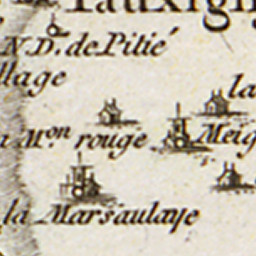 N.D. de Pitié
llage
la
Mon rouge
Meig
la Marsaulaye